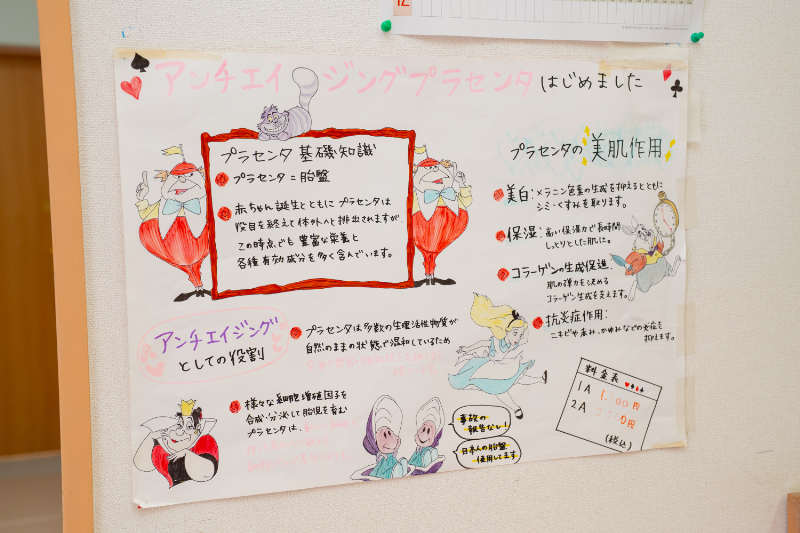 アンチエイジングプラセンタ はじめました
プラセンタ 基礎知識
プラセンタ = 胎盤
赤ちゃん誕生とともにプラセンタは
役目を終えて体外へと排出されますが、
この時点でも豊富な栄養と
各種有効成分を多く含んでいます。
プラセンタの 美肌作用
美白:メラニン色素の生成を抑えるとともに
シミ・くすみを取ります。
保湿:高い保湿力で長時間
しっとりとした肌に。
コラーゲンの生成促進:
肌の弾力を決める
コラーゲン生成を支えます。
抗炎症作用:
ニキビや痛み、かゆみなどの炎症を
抑えます。
アンチエイジング
としての役割
プラセンタは多数の生理活性物質が
自然のままの状態で温和しているため
様々な細胞増殖因子を
合成・分泌して胎児を育む
プラセンタは、
事故の
報告なし!
日本人の胎盤
使用してます
料金表
1A
2A
(税込)